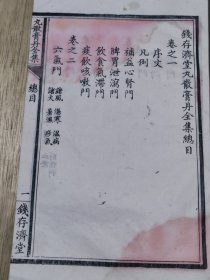 錢存濟堂丸散膏丹全集總目
卷之一
序文
凡例
補益心腎門
脾胃泄瀉門
飲食氣滯門
痰飲咳嗽門
卷之二
六氣門
諸風 傷寒 濕病
諸火 暑濕 疹氣
丸散膏丹全集
總目
一
錢存濟堂